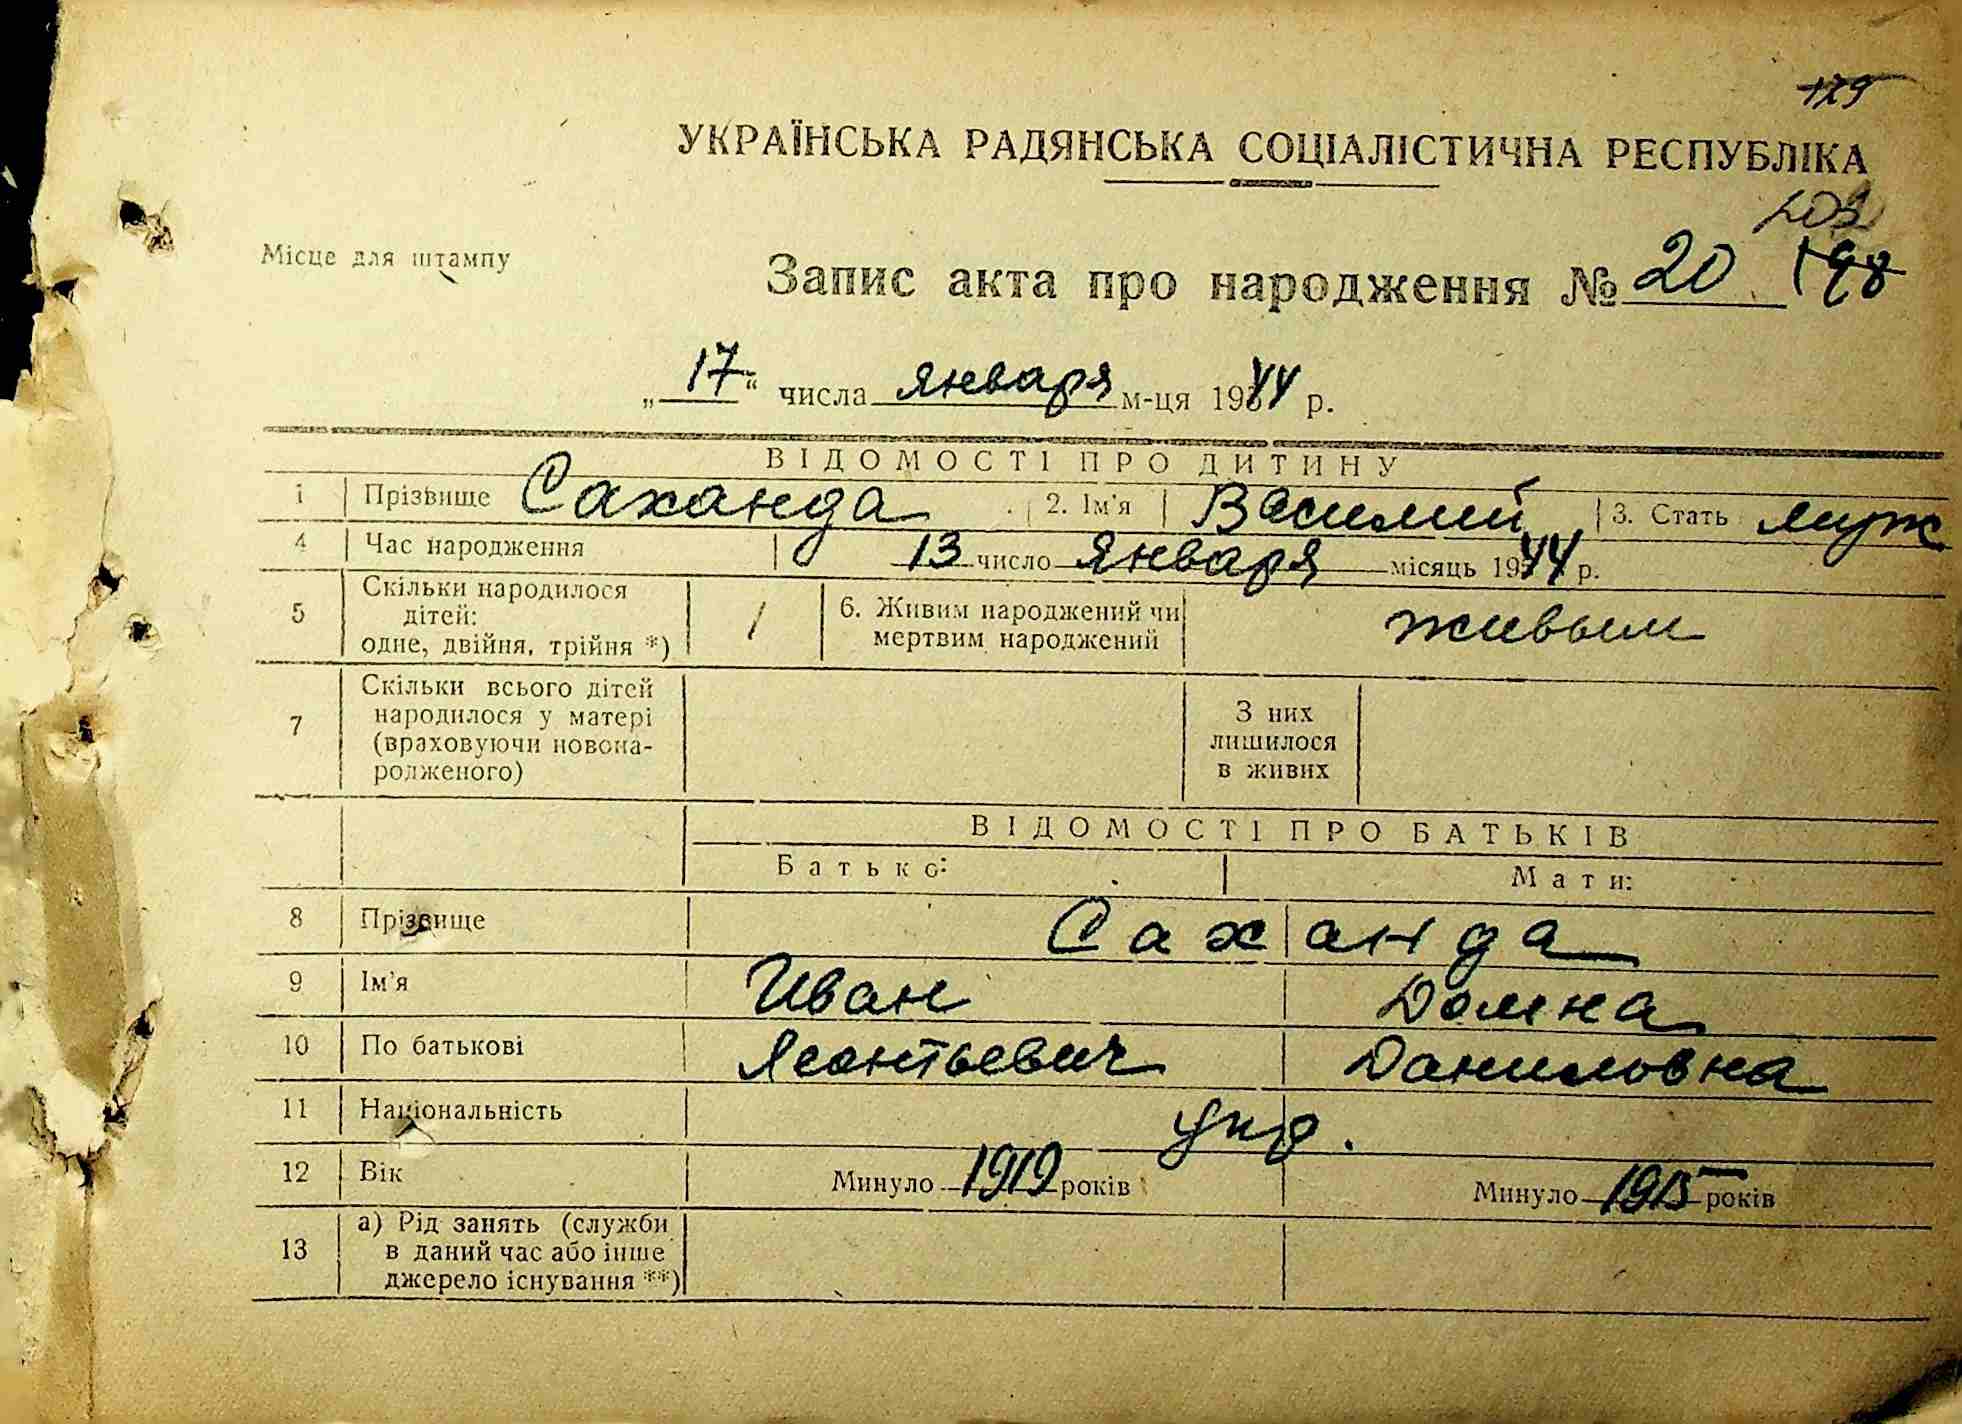 129
УКРАЇНСЬКА РАДЯНСЬКА СОЦІАЛІСТИЧНА РЕСПУБЛІКА
Місце для штампу
Запис акта про народження № 20 198
„17“ числа января м-ця 1944 р.
ВІДОМОСТІ ПРО ДИТИНУ
1 Прізвище Саханда 2. Ім'я Василий 3. Стать муж
4 Час народження 13 число января місяць 1944 р.
5 Скільки народилося дітей: одне, двійня, трійня *) 1 6. Живим народжений чи мертвим народжений живым
7 Скільки всього дітей народилося у матері (враховуючи новона-родженого) З них лишилося в живих
ВІДОМОСТІ ПРО БАТЬКІВ
Батько: Мати:
8 Прізвище Саханда
9 Ім'я Иван Домна
10 По батькові Леонтьевич Даниловна
11 Національність укр.
12 Вік Минуло 1919 років Минуло 1915 років
13 а) Рід занять (служби в даний час або інше джерело існування **)